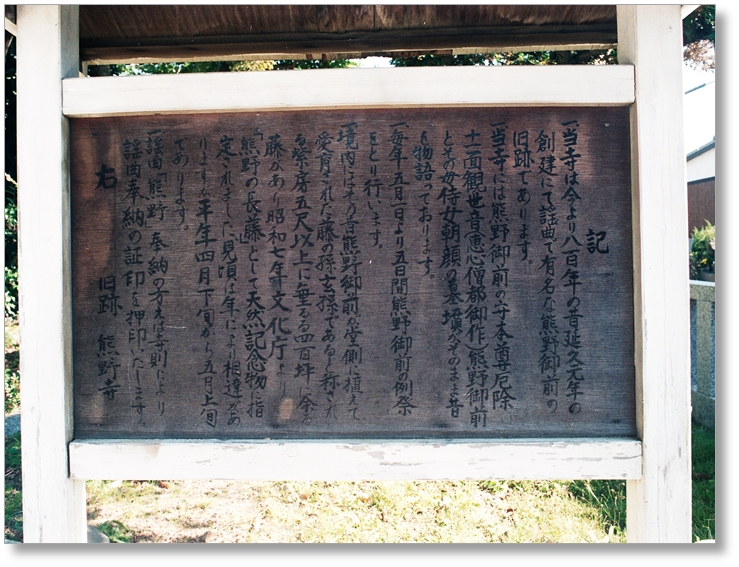 記
一当寺は今より八百年の昔延久元年の
創建にて謡曲で有名な熊野御前の
旧跡であります。
一当寺には熊野御前の守本尊厄除
十一面観世音(恵心僧都御作)熊野御前
とその母侍女朝顔の墓墳がそのまま昔
を物語っております。
一毎年五月一日より五日間熊野御前の例祭
をとり行います。
一境内にはその昔熊野御前が堂側に植えて
愛育された藤の孫玄孫であると称され
る紫房五尺以上に垂るる四百坪に余る
藤があり昭和七年文化庁より
「熊野の長藤」として天然記念物に指
定されました見頃は年により相違があ
りますが平年四月下旬から五月上旬
であります。
一謡曲「熊野」奉納の方えは寺則により
謡曲奉納の証印を押印いたします。
右 旧跡 熊野寺